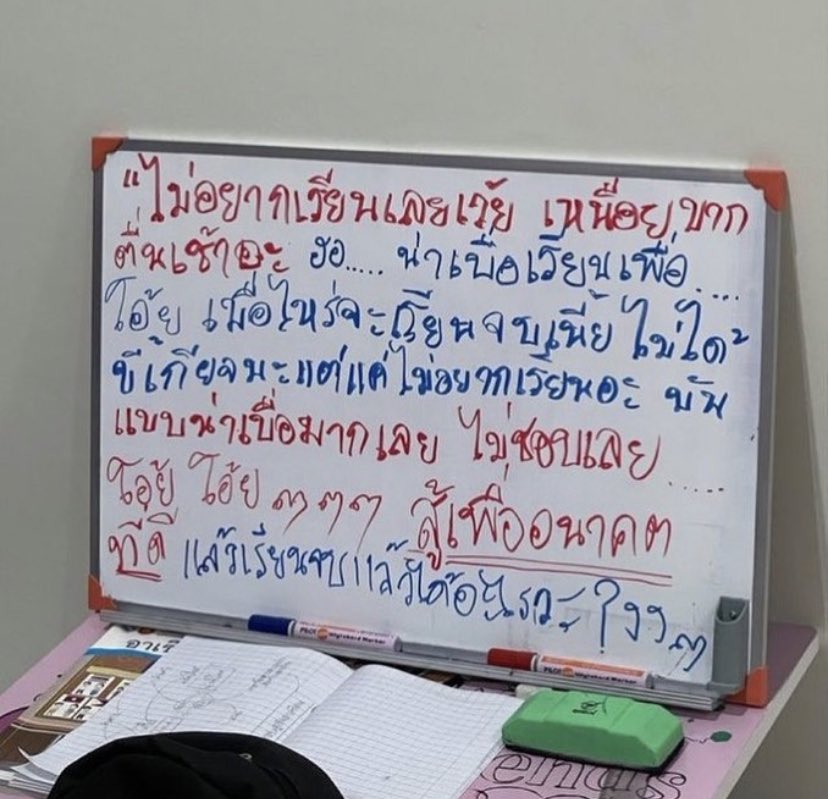 "ไม่อยากเรียนเลยเว้ย เหนื่อยมาก
ตื่นเช้าอะ ฮอ..... น่าเบื่อเรียนเพื่อ.....
โอ้ย เมื่อไหร่จะเรียนจบเนี้ย ไม่ได้
ขี้เกียจนะแต่แค่ไม่อยากเรียนอะ มัน
แบบน่าเบื่อมากเลย ไม่ชอบเลย......
โอ้ย โอ้ย ๆๆๆ สู้เพื่ออนาคต
ที่ดี แล้วเรียนจบแล้วได้อะไรวะ ? งง ๆ
PILOT Wyteboard Marker
PILOT Wyteboard Marker